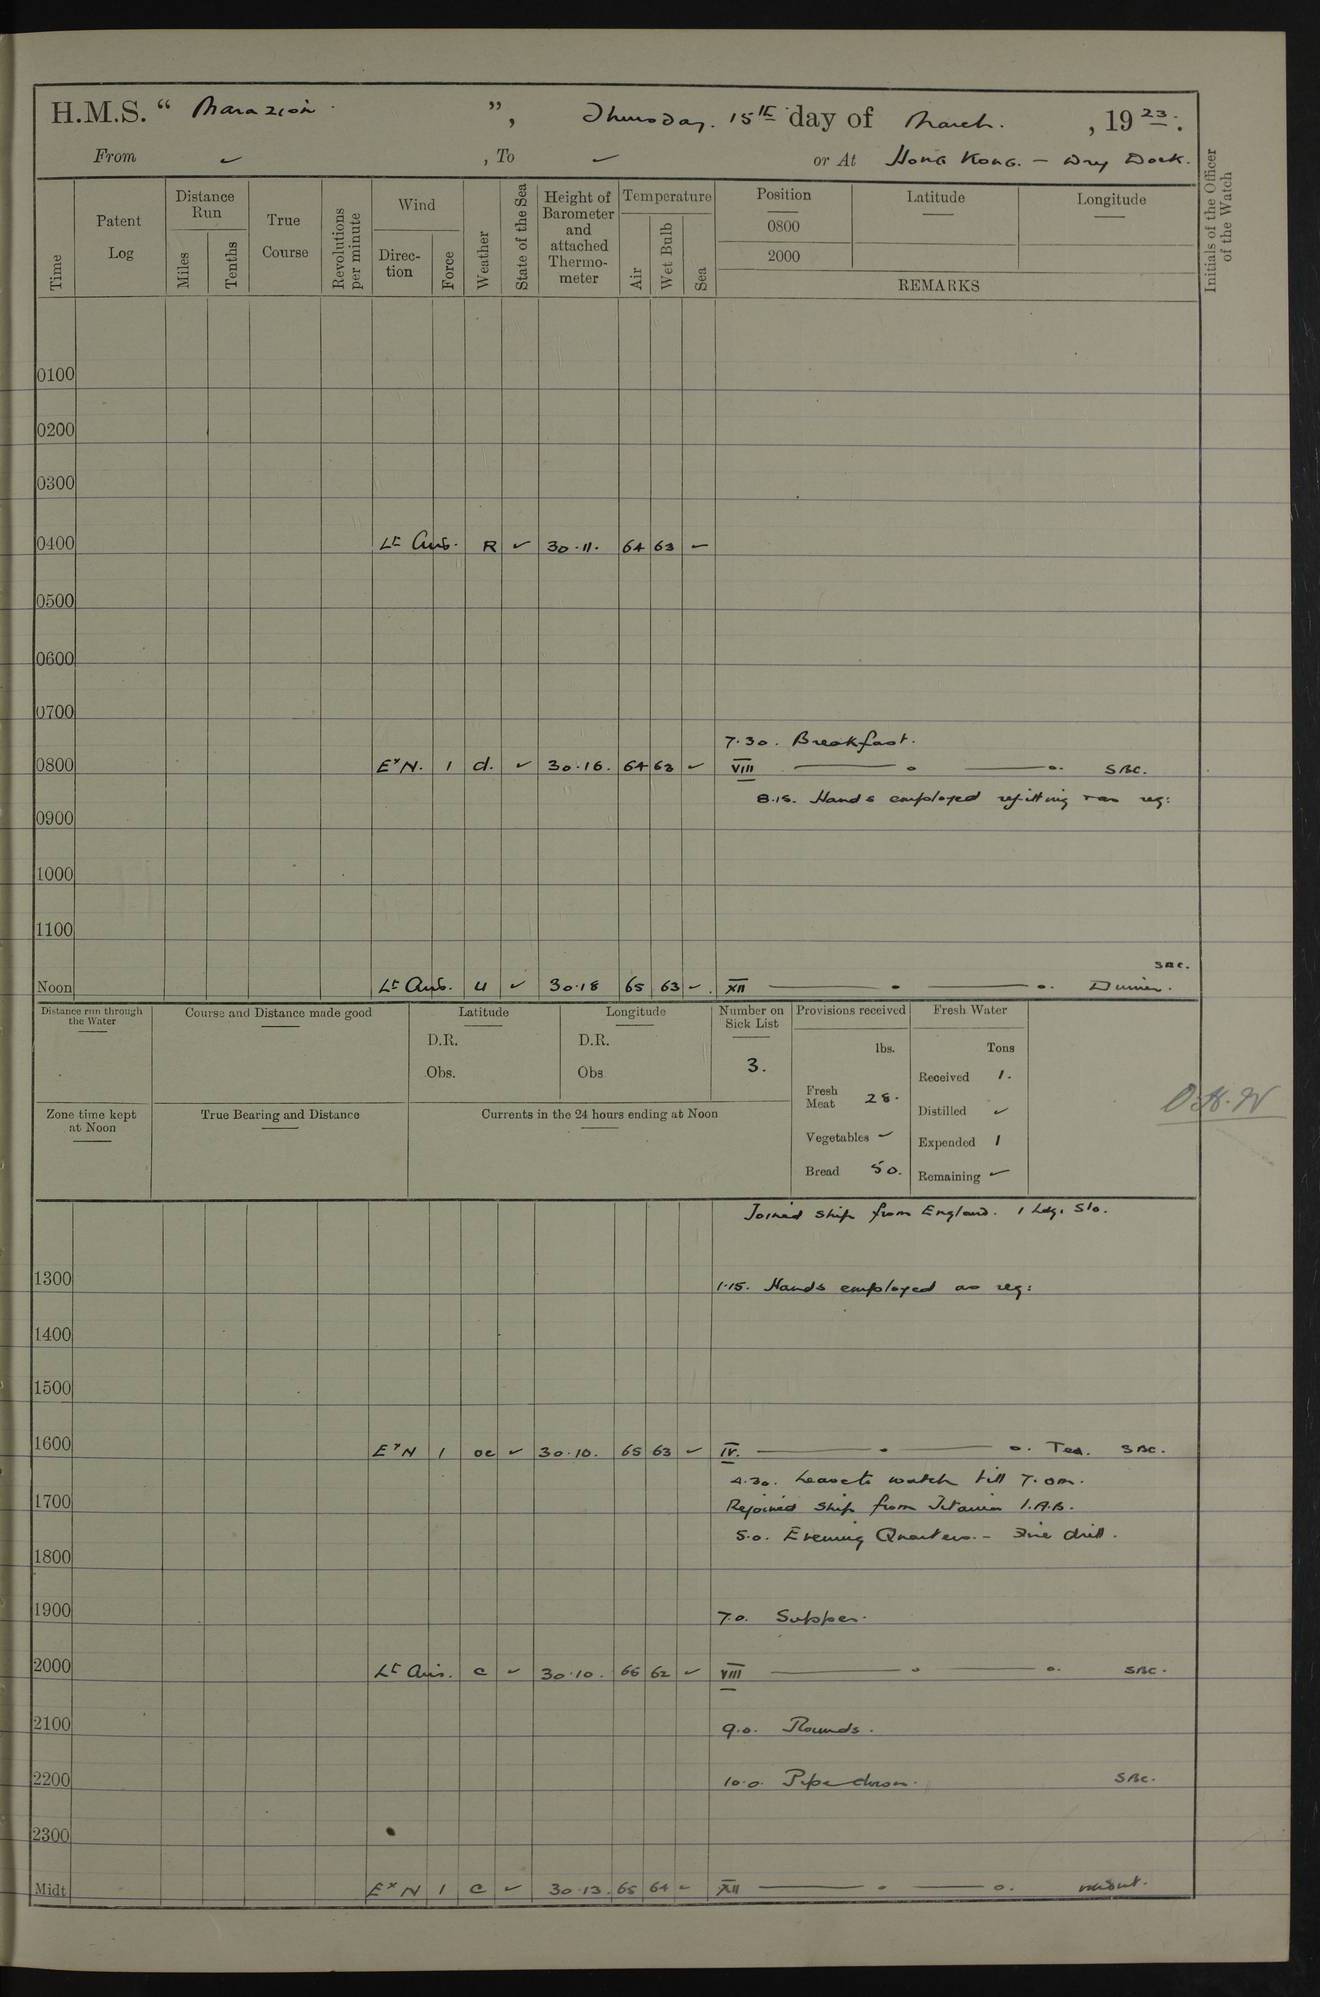 H.M.S. “ Marazion ”, Thursday. 15th day of March. , 1923.
From ✓ , To ✓ or At Hong Kong. — Dry Dock.
Time
Patent Log
Distance Run
Miles
Tenths
True Course
Revolutions per minute
Wind
Direc-tion
Force
Weather
State of the Sea
Height of Barometer and attached Thermo-meter
Temperature
Air
Wet Bulb
Sea
Position
0800
2000
Latitude
Longitude
REMARKS
Initials of the Officer of the Watch
0100
0200
0300
0400 Lt Airs. R ✓ 30.11. 64 63 ✓
0500
0600
0700
7.30. Breakfast.
0800 ExN. 1 d. ✓ 30.16. 64 63 ✓ VIII —— o —— o. SBC.
8.15. Hands employed refitting as req:
0900
1000
1100
SBC.
Noon Lt Airs. u ✓ 30.18 65 63 ✓ XII —— o —— o. Dinner.
Distance run through the Water
Course and Distance made good
Latitude
D.R.
Obs.
Longitude
D.R.
Obs
Number on Sick List
3.
Provisions received
lbs.
Fresh Meat 28.
Vegetables ✓
Bread 50.
Fresh Water
Tons
Received 1.
Distilled ✓
Expended 1
Remaining ✓
Zone time kept at Noon
True Bearing and Distance
Currents in the 24 hours ending at Noon
Joined ship from England. 1 Ldg. Sto.
1300 1.15. Hands employed as req:
1400
1500
1600 ExN 1 oc ✓ 30.10. 65 63 ✓ IV. —— o —— o. Tea. SBC.
4.30. Leave to watch till 7.0am.
1700 Rejoined ship from Titania 1.A.B.
5.0. Evening Quarters. – Fire drill.
1800
1900 7.0. Supper.
2000 Lt Airs. c ✓ 30.10. 66 62 ✓ VIII —— o —— o. SBC.
2100 9.0. Rounds.
2200 10.0. Pipe down. SBC.
2300
Midt ExN 1 c ✓ 30.13. 65 64 ✓ XII —— o —— o.